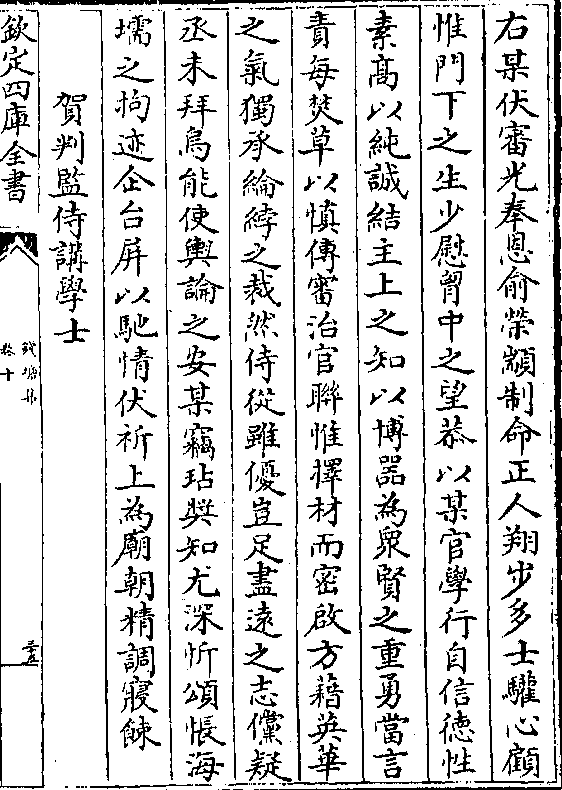 右某伏審光奉恩俞榮顓制命正人翔步多士驩心顧
惟門下之生少慰胷中之望恭以某官學行自信徳性
素髙以純誠結主上之知以博器為衆賢之重勇當言
責每焚草以慎傳審治官聨惟擇材而密啟方藉英華
之氣獨承綸綍之裁然侍從雖優豈足盡逺之志儻疑
丞未拜烏能使輿論之安某竊玷奬知尤深忻頌悵海
壖之拘迹企台屏以馳情伏祈上為廟朝精調寢餗
賀判監侍講學士
欽定四庫全書
錢塘集
卷十
三五